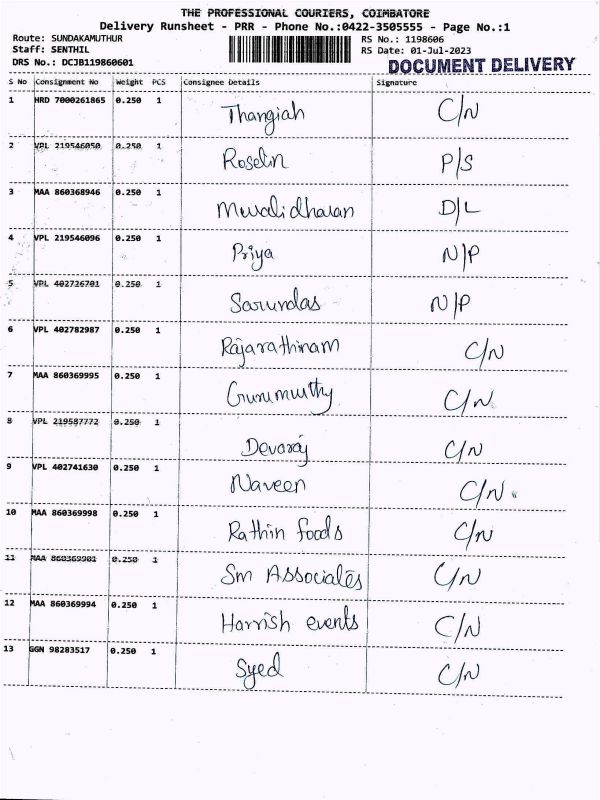 THE PROFESSIONAL COURIERS, COIMBATORE
Delivery Runsheet - PRR - Phone No.:0422-3505555 - Page No.:1
Route: SUNDAKAMUTHUR RS No.: 1198606
Staff: SENTHIL RS Date: 01-Jul-2023
DRS No.: DCJB119860601 DOCUMENT DELIVERY
S No Consignment No Weight PCS Consignee Details Signature
1 HRD 7000261865 0.250 1 Thangiah C/N
2 VPL 219546050 0.250 1 Roselin P/S
3 MAA 860368946 0.250 1 Muralidharan D/L
4 VPL 219546096 0.250 1 Priya N/P
5 VPL 402726701 0.250 1 Sarundas N/P
6 VPL 402782987 0.250 1 Rajarathinam C/N
7 MAA 860369995 0.250 1 Gurumurthy C/N
8 VPL 219587772 0.250 1 Devaraj C/N
9 VPL 402741630 0.250 1 Naveen C/N
10 MAA 860369998 0.250 1 Rathin foods C/N
11 MAA 860369981 0.250 1 Sm Associates C/N
12 MAA 860369994 0.250 1 Harrish events C/N
13 GGN 98283517 0.250 1 Syed C/N